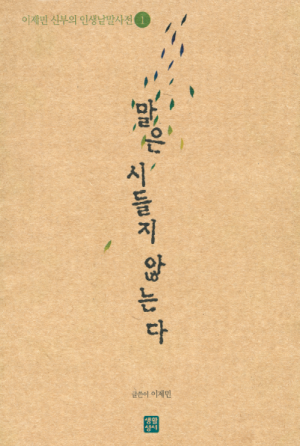 이제민 신부의 인생낱말사전 1
말은 시들지 않는다
글쓴이 이제민
생활
성서